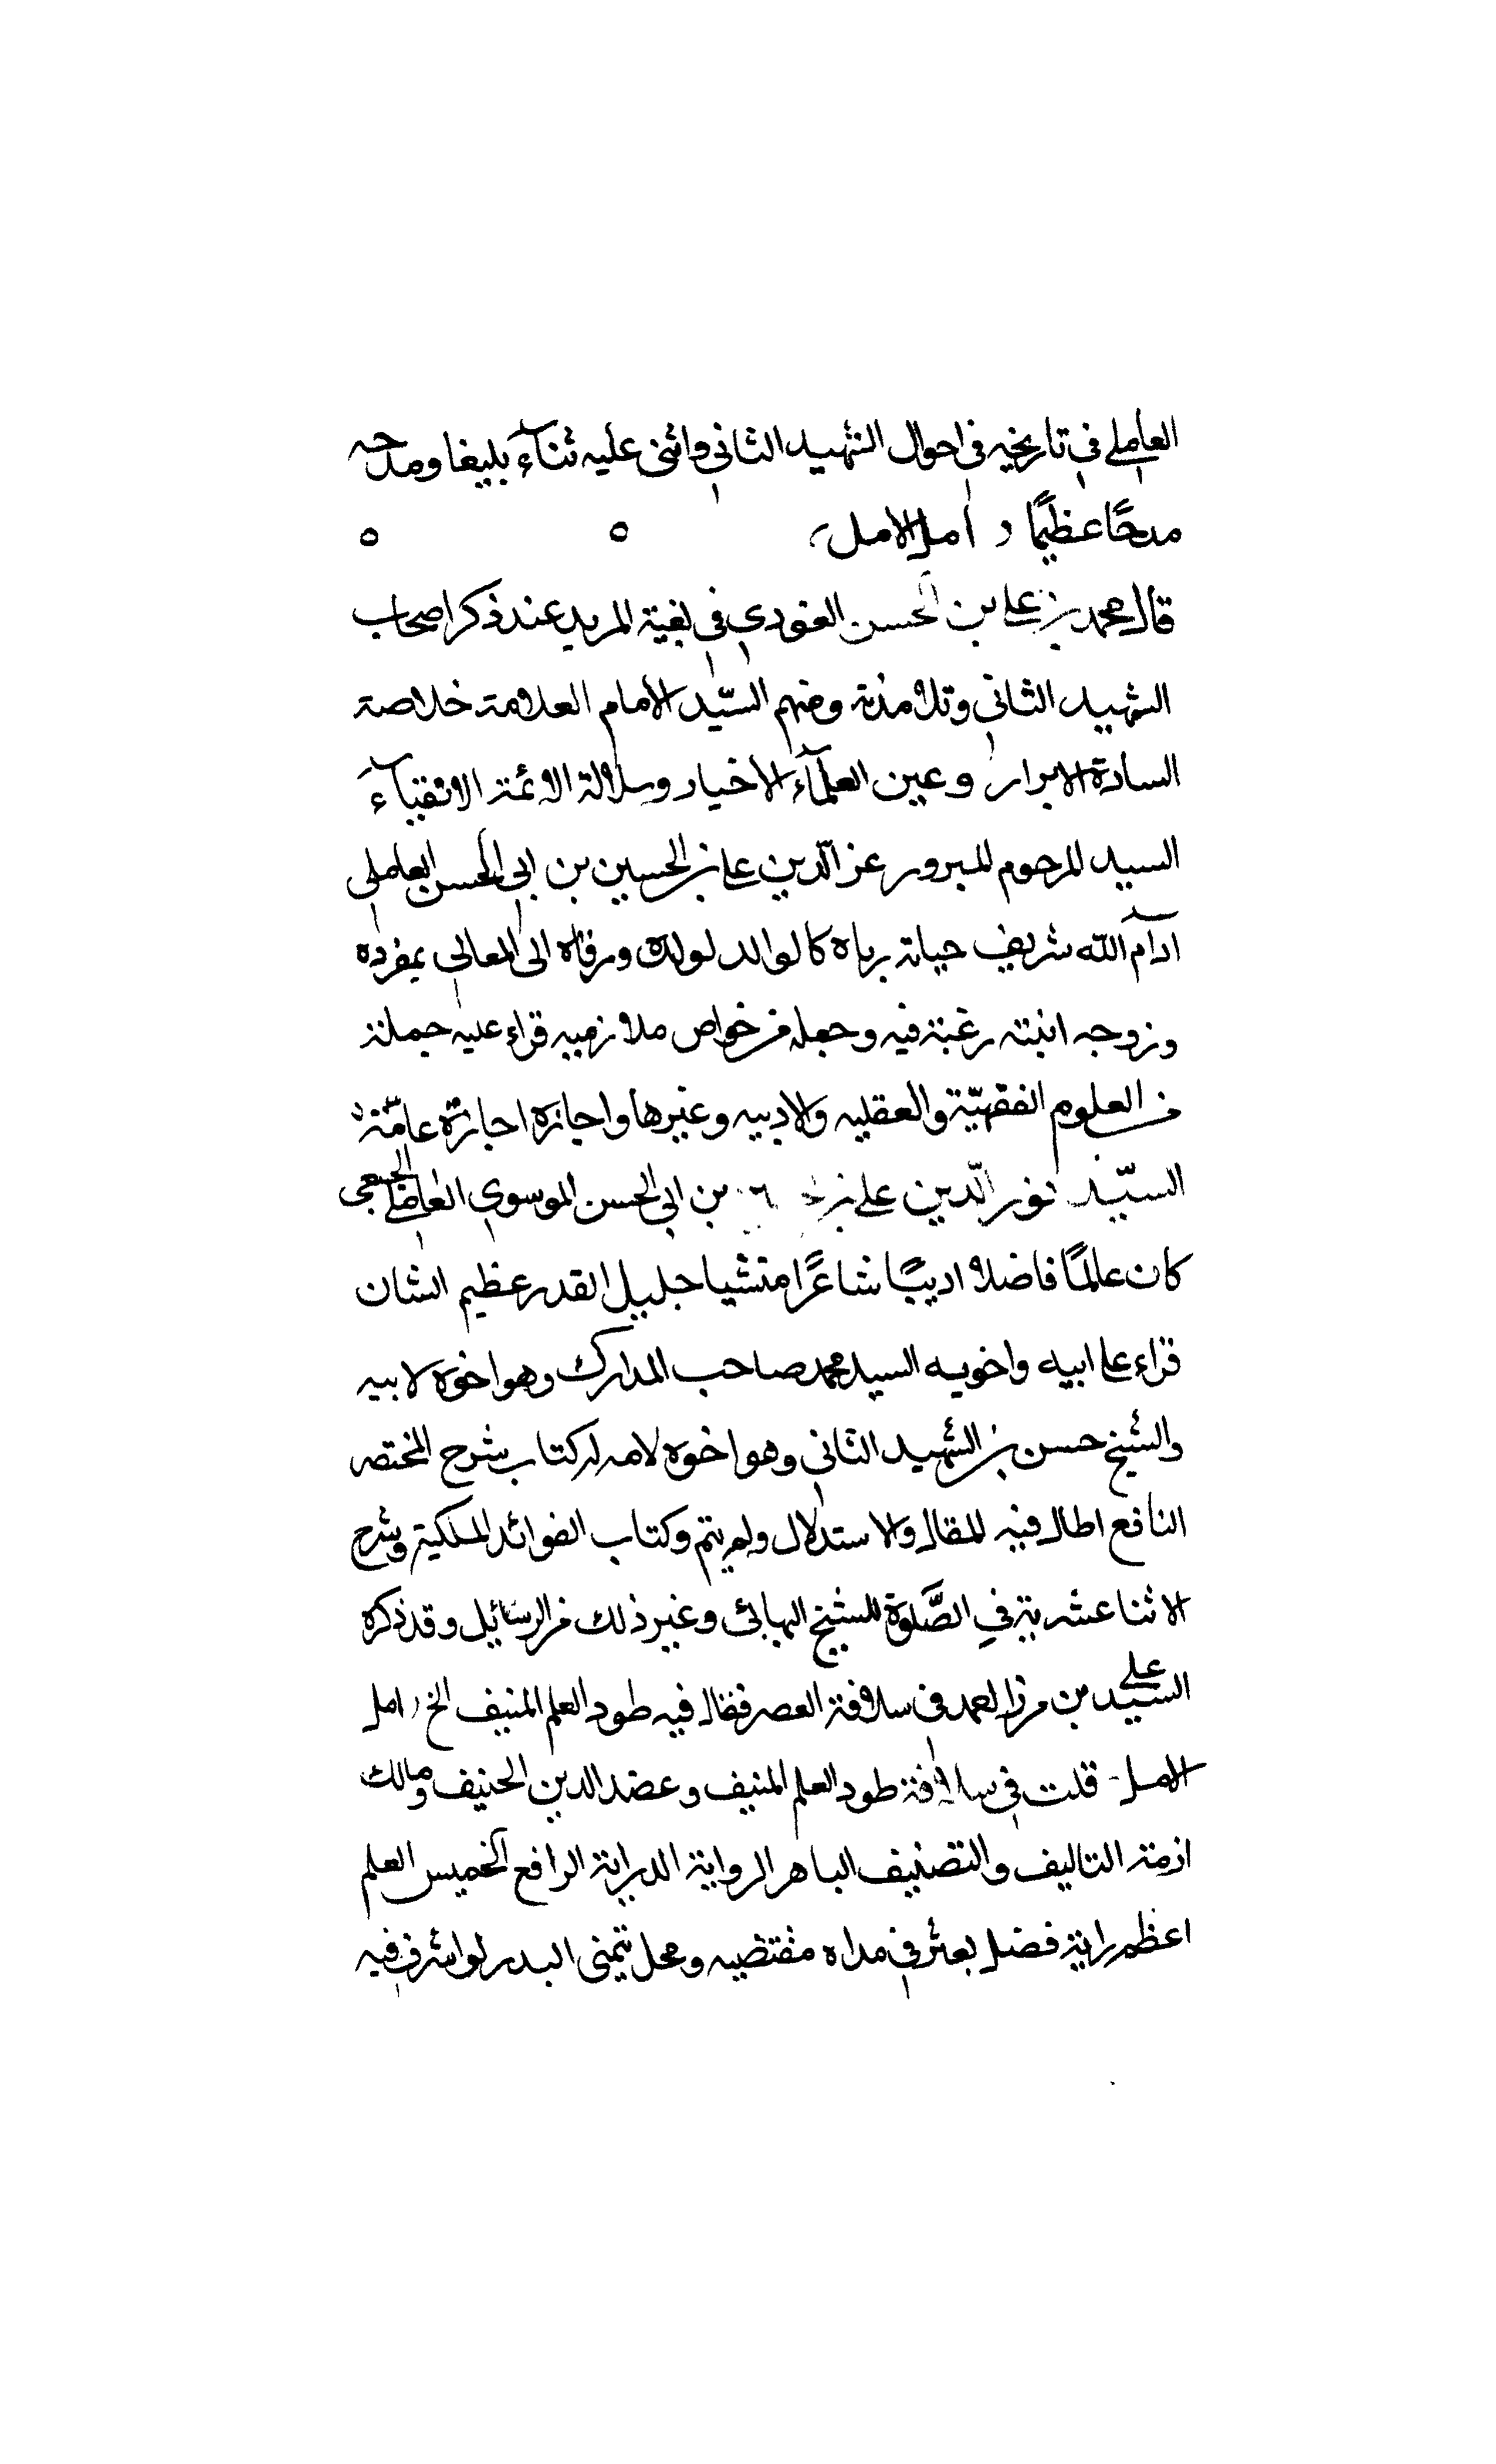 العاملي في تاريخه في احوال الشهيد الثاني واثنى عليه ثناء بليغا ومدحه
مدحًا عظيمًا امل الامل
قال محمد بن علي بن الحسن العودي في بغية المريد عند ذكر اصحاب
الشهيد الثاني وتلامذته ومنهم السيّد الامام العلامة خلاصة
السادة الابرار وعين العلمآء الاخيار وسلالة الائمة الاتقيآء
السيد المرحوم المبرور عز الدّين علي بن الحسين بن ابي الحسن العاملي
ادآم الله شريف حياته رباه كالوالد لولده ورقاه الى المعالي بمفرده
وزوجه ابنته رغبة فيه وجعله من خواص ملازميه قراء عليه جملة
من العلوم الفقهيّة والعقليه والادبيه وغيرها واجازه اجازة عامّة
السيّد نور الدّين علي بن بن ابي الحسن الموسوي العاملي الجبعي
كان عالمًا فاضلا اديبًا شاعرًا منشيا جليل القدر عظيم الشان
قراء على ابيه واخويه السيد محمد صاحب المدارك وهو اخوه لابيه
والشيخ حسن بن الشهيد الثاني وهو اخوه لامه له كتاب شرح المختصر
النافع اطال فيه المقال والاستدلال ولم يتم وكتاب الفوائد المكية وشرح
الاثنا عشرية في الصَّلوة للشيخ البهائي وغير ذلك من الرسائل وقد ذكره
السيد علي بن مرزا احمد في سلافة العصر فقال فيه طود العلم المنيف الخ امل
الامل قلت في سلافة طود العلم المنيف وعضد الدين الحنيف ومالك
ازمة التاليف والتصنيف الباهر الرواية الدراية الرافع الخميس العلم
اعظم راية فضل يعثر في مداه مقتضيه ومحل يتمنى البدر لو اشرق فيه